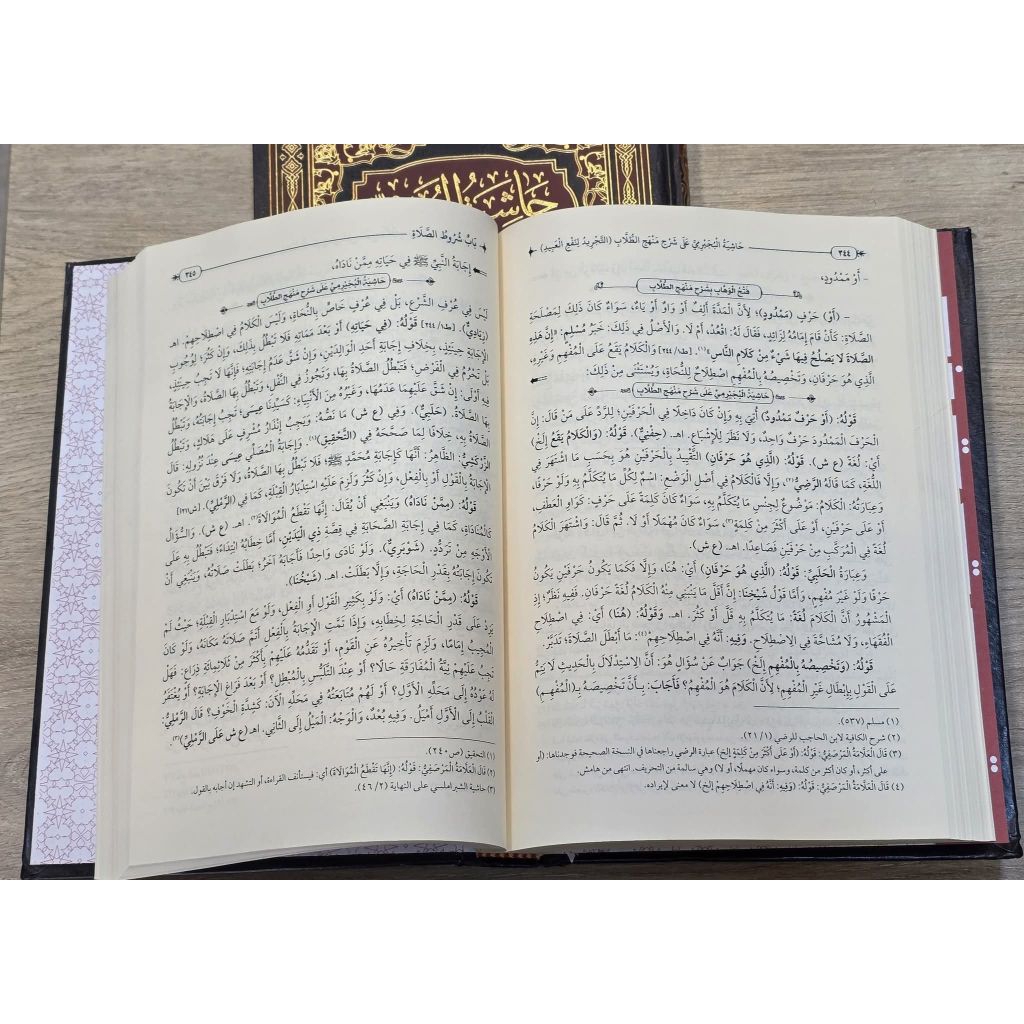 حَاشِيَةُ الْبُجَيْرِمِيِّ عَلَى شَرْحِ مَنْهَجِ الطُّلَّابِ (التَّجْرِيدُ لِنَفْعِ الْعَبِيدِ)
٣٤٤
- أَوْ مَمْدُودٍ،
فَتْحُ الْوَهَّابِ بِشَرْحِ مَنْهَجِ الطُّلَّابِ
- (أَوْ) حَرْفٍ (مَمْدُودٍ)؛ لِأَنَّ الْمَدَّةَ أَلِفٌ أَوْ وَاوٌ أَوْ يَاءٌ، سَوَاءٌ كَانَ ذَلِكَ لِمَصْلَحَةِ
الصَّلَاةِ: كَأَنْ قَامَ إِمَامُهُ لِزَائِدٍ، فَقَالَ لَهُ: اقْعُدْ، أَمْ لَا. وَالْأَصْلُ فِي ذَلِكَ: خَبَرُ مُسْلِمٍ: «إِنَّ هَذِهِ
الصَّلَاةَ لَا يَصْلُحُ فِيهَا شَيْءٌ مِنْ كَلَامِ النَّاسِ»(١). [ط١/٢٤٤] وَالْكَلَامُ يَقَعُ عَلَى الْمُفْهِمِ وَغَيْرِهِ،
الَّذِي هُوَ حَرْفَانِ، وَتَخْصِيصُهُ بِالْمُفْهِمِ اصْطِلَاحٌ لِلنُّحَاةِ، وَيُسْتَثْنَى مِنْ ذَلِكَ:
حَاشِيَةُ الْبُجَيْرِمِيِّ عَلَى شَرْحِ مَنْهَجِ الطُّلَّابِ
قَوْلُهُ: (أَوْ حَرْفٌ مَمْدُودٌ) أُتِيَ بِهِ وَإِنْ كَانَ دَاخِلًا فِي الْحَرْفَيْنِ؛ لِلرَّدِّ عَلَى مَنْ قَالَ: إِنَّ
الْحَرْفَ الْمَمْدُودَ حَرْفٌ وَاحِدٌ، وَلَا نَظَرَ لِلْإِشْبَاعِ. اهـ. (حِفْنِيٌّ). قَوْلُهُ: (وَالْكَلَامُ يَقَعُ إِلَخْ)
أَيْ: لُغَةً (ع ش). قَوْلُهُ: (الَّذِي هُوَ حَرْفَانِ) التَّقْيِيدُ بِالْحَرْفَيْنِ هُوَ بِحَسَبِ مَا اشْتَهَرَ فِي
اللُّغَةِ، كَمَا قَالَهُ الرَّضِيُّ(٢)، وَإِلَّا فَالْكَلَامُ فِي أَصْلِ الْوَضْعِ: اسْمٌ لِكُلِّ مَا يُتَكَلَّمُ بِهِ وَلَوْ حَرْفًا،
وَعِبَارَتُهُ: الْكَلَامُ: مَوْضُوعٌ لِجِنْسِ مَا يُتَكَلَّمُ بِهِ، سَوَاءٌ كَانَ كَلِمَةً عَلَى حَرْفٍ: كَوَاوِ الْعَطْفِ،
أَوْ عَلَى حَرْفَيْنِ، أَوْ عَلَى أَكْثَرَ مِنْ كَلِمَةٍ(٣)، سَوَاءٌ كَانَ مُهْمَلًا أَوْ لَا. ثُمَّ قَالَ: وَاشْتَهَرَ الْكَلَامُ
لُغَةً فِي الْمُرَكَّبِ مِنْ حَرْفَيْنِ فَصَاعِدًا. اهـ. (ع ش).
وَعِبَارَةُ الْحَلَبِيِّ: قَوْلُهُ: (الَّذِي هُوَ حَرْفَانِ) أَيْ: هُنَا، وَإِلَّا فَكَمَا يَكُونُ حَرْفَيْنِ يَكُونُ
حَرْفًا وَلَوْ غَيْرَ مُفْهِمٍ، وَأَمَّا قَوْلُ شَيْخِنَا: إِنَّ أَقَلَّ مَا يَنْبَنِي مِنْهُ الْكَلَامُ لُغَةً حَرْفَانِ. فَفِيهِ نَظَرٌ؛ إِذِ
الْمَشْهُورُ أَنَّ الْكَلَامَ لُغَةً: مَا يُتَكَلَّمُ بِهِ قَلَّ أَوْ كَثُرَ. اهـ. وَقَوْلُهُ: (هُنَا) أَيْ: فِي اصْطِلَاحِ
الْفُقَهَاءِ، وَلَا مُشَاحَّةَ فِي الِاصْطِلَاحِ. وَفِيهِ: أَنَّهُ فِي اصْطِلَاحِهِمْ(٤): مَا أَبْطَلَ الصَّلَاةَ؛ تَدَبَّرْ.
قَوْلُهُ: (وَتَخْصِيصُهُ بِالْمُفْهِمِ إِلَخْ) جَوَابٌ عَنْ سُؤَالٍ هُوَ: أَنَّ الِاسْتِدْلَالَ بِالْحَدِيثِ لَا يَتِمُّ
عَلَى الْقَوْلِ بِإِبْطَالِ غَيْرِ الْمُفْهِمِ؛ لِأَنَّ الْكَلَامَ هُوَ الْمُفْهِمُ؟ فَأَجَابَ: بِأَنَّ تَخْصِيصَهُ بِـ(الْمُفْهِمِ)
(١) مسلم (٥٣٧).
(٢) شرح الكافية لابن الحاجب للرضي (٢١/١).
(٣) قَالَ الْعَلَّامَةُ الْمَرْصَفِيُّ: قَوْلُهُ: (أَوْ عَلَى أَكْثَرَ مِنْ كَلِمَةٍ إلخ) عبارة الرضي راجعناها في النسخة الصحيحة فوجدناها: (أو
على أكثر، أو كان أكثر من كلمة، وسواء كان مهملًا، أو لا) وهي سالمة من التحريف. انتهى من هامش.
(٤) قَالَ الْعَلَّامَةُ الْمَرْصَفِيُّ: قَوْلُهُ: (وَفِيهِ: أَنَّهُ فِي اصْطِلَاحِهِمْ إلخ) لا معنى لإيراده.
بَابُ شُرُوطِ الصَّلَاةِ
٣٤٥
إِجَابَةُ النَّبِيِّ ﷺ فِي حَيَاتِهِ مِمَّنْ نَادَاهُ،
حَاشِيَةُ الْبُجَيْرِمِيِّ عَلَى شَرْحِ مَنْهَجِ الطُّلَّابِ
لَيْسَ فِي عُرْفِ الشَّرْعِ، بَلْ فِي عُرْفٍ خَاصٍّ بِالنُّحَاةِ، وَلَيْسَ الْكَلَامُ فِي اصْطِلَاحِهِمْ. اهـ
(زِيَادِيٌّ). [ط١/٢٤٤] قَوْلُهُ: (فِي حَيَاتِهِ) أَوْ بَعْدَ مَمَاتِهِ فَلَا تَبْطُلُ بِذَلِكَ، وَإِنْ كَثُرَ؛ لِوُجُوبِ
الْإِجَابَةِ حِينَئِذٍ، بِخِلَافِ إِجَابَةِ أَحَدِ الْوَالِدَيْنِ، وَإِنْ شَقَّ عَدَمُ إِجَابَتِهِ؛ فَإِنَّهَا لَا تَجِبُ حِينَئِذٍ،
بَلْ تَحْرُمُ فِي الْفَرْضِ؛ فَتَبْطُلُ الصَّلَاةُ بِهَا، وَتَجُوزُ فِي النَّفْلِ، وَتَبْطُلُ بِهَا الصَّلَاةُ، وَالْإِجَابَةُ
فِيهِ أَوْلَى: إِنْ شَقَّ عَلَيْهِمَا عَدَمُهَا، وَغَيْرُهُ مِنَ الْأَنْبِيَاءِ: كَسَيِّدِنَا عِيسَى؛ تَجِبُ إِجَابَتُهُ، وَتَبْطُلُ
بِهَا الصَّلَاةُ. (حَلَبِيٌّ). وَفِي (ع ش) مَا نَصُّهُ: وَيَجِبُ إِنْذَارُ مُشْرِفٍ عَلَى هَلَاكٍ، وَتَبْطُلُ
الصَّلَاةُ بِهِ، خِلَافًا لِمَا صَحَّحَهُ فِي (التَّحْقِيقِ)(١). وَإِجَابَةُ الْمُصَلِّي عِيسَى عِنْدَ نُزُولِهِ: قَالَ
الزَّرْكَشِيُّ: الظَّاهِرُ: أَنَّهَا كَإِجَابَةِ مُحَمَّدٍ ﷺ؛ فَلَا تَبْطُلُ بِهَا الصَّلَاةُ، وَلَا فَرْقَ بَيْنَ أَنْ تَكُونَ
الْإِجَابَةُ بِالْقَوْلِ أَوْ بِالْفِعْلِ، وَإِنْ كَثُرَ وَلَزِمَ عَلَيْهِ اسْتِدْبَارُ الْقِبْلَةِ، كَمَا فِي (الرَّمْلِيِّ).
قَوْلُهُ: (مِمَّنْ نَادَاهُ) وَيَنْبَغِي أَنْ يُقَالَ: إِنَّهَا تَقْطَعُ الْمُوَالَاةَ(٢). اهـ. (ع ش). وَالسُّؤَالُ
كَالْمُنَادَاةِ، كَمَا فِي إِجَابَةِ الصَّحَابَةِ فِي قِصَّةِ ذِي الْيَدَيْنِ، أَمَّا خِطَابُهُ ابْتِدَاءً؛ فَتَبْطُلُ بِهِ عَلَى
الْأَوْجَهِ مِنْ تَرَدُّدٍ. (شَوْبَرِيٌّ). وَلَوْ نَادَى وَاحِدًا فَأَجَابَهُ آخَرُ؛ بَطَلَتْ صَلَاتُهُ، وَيَنْبَغِي أَنْ
تَكُونَ إِجَابَتُهُ بِقَدْرِ الْحَاجَةِ، وَإِلَّا بَطَلَتْ. اهـ. (شَيْخُنَا).
قَوْلُهُ: (مِمَّنْ نَادَاهُ) أَيْ: وَلَوْ بِكَثِيرِ الْقَوْلِ أَوِ الْفِعْلِ، وَلَوْ مَعَ اسْتِدْبَارِ الْقِبْلَةِ؛ حَيْثُ لَمْ
يَزِدْ عَلَى قَدْرِ الْحَاجَةِ لِخِطَابِهِ، وَإِذَا تَمَّتِ الْإِجَابَةُ بِالْفِعْلِ أَتَمَّ صَلَاتَهُ مَكَانَهُ، وَلَوْ كَانَ
الْمُجِيبُ إِمَامًا، وَلَزِمَ تَأْخِيرُهُ عَنِ الْقَوْمِ، أَوْ تَقَدُّمُهُ عَلَيْهِمْ بِأَكْثَرَ مِنْ ثَلَاثِمِائَةِ ذِرَاعٍ: فَهَلْ
تَجِبُ عَلَيْهِمْ نِيَّةُ الْمُفَارَقَةِ حَالًا؟ أَوْ عِنْدَ التَّلَبُّسِ بِالْمُبْطِلِ؟ أَوْ بَعْدَ فَرَاغِ الْإِجَابَةِ؟ أَوْ يُغْتَفَرُ
لَهُ عَوْدُهُ إِلَى مَحَلِّهِ الْأَوَّلِ؟ أَوْ لَهُمْ مُتَابَعَتُهُ فِي مَحَلِّهِ الْآنَ: كَشِدَّةِ الْخَوْفِ؟ قَالَ الرَّمْلِيُّ:
الْقَلْبُ إِلَى الْأَوَّلِ أَمْيَلُ. وَفِيهِ بُعْدٌ، وَالْوَجْهُ: الْمَيْلُ إِلَى الثَّانِي. اهـ (ع ش عَلَى الرَّمْلِيِّ)(٣).
(١) التحقيق (ص٢٤٠).
(٢) قَالَ الْعَلَّامَةُ الْمَرْصَفِيُّ: قَوْلُهُ: (إِنَّهَا تَقْطَعُ الْمُوَالَاةَ) أي: فيستأنف القراءة، أو التشهد إن أجابه بالقول.
(٣) حاشية الشبراملسي على النهاية (٤٦/٢).